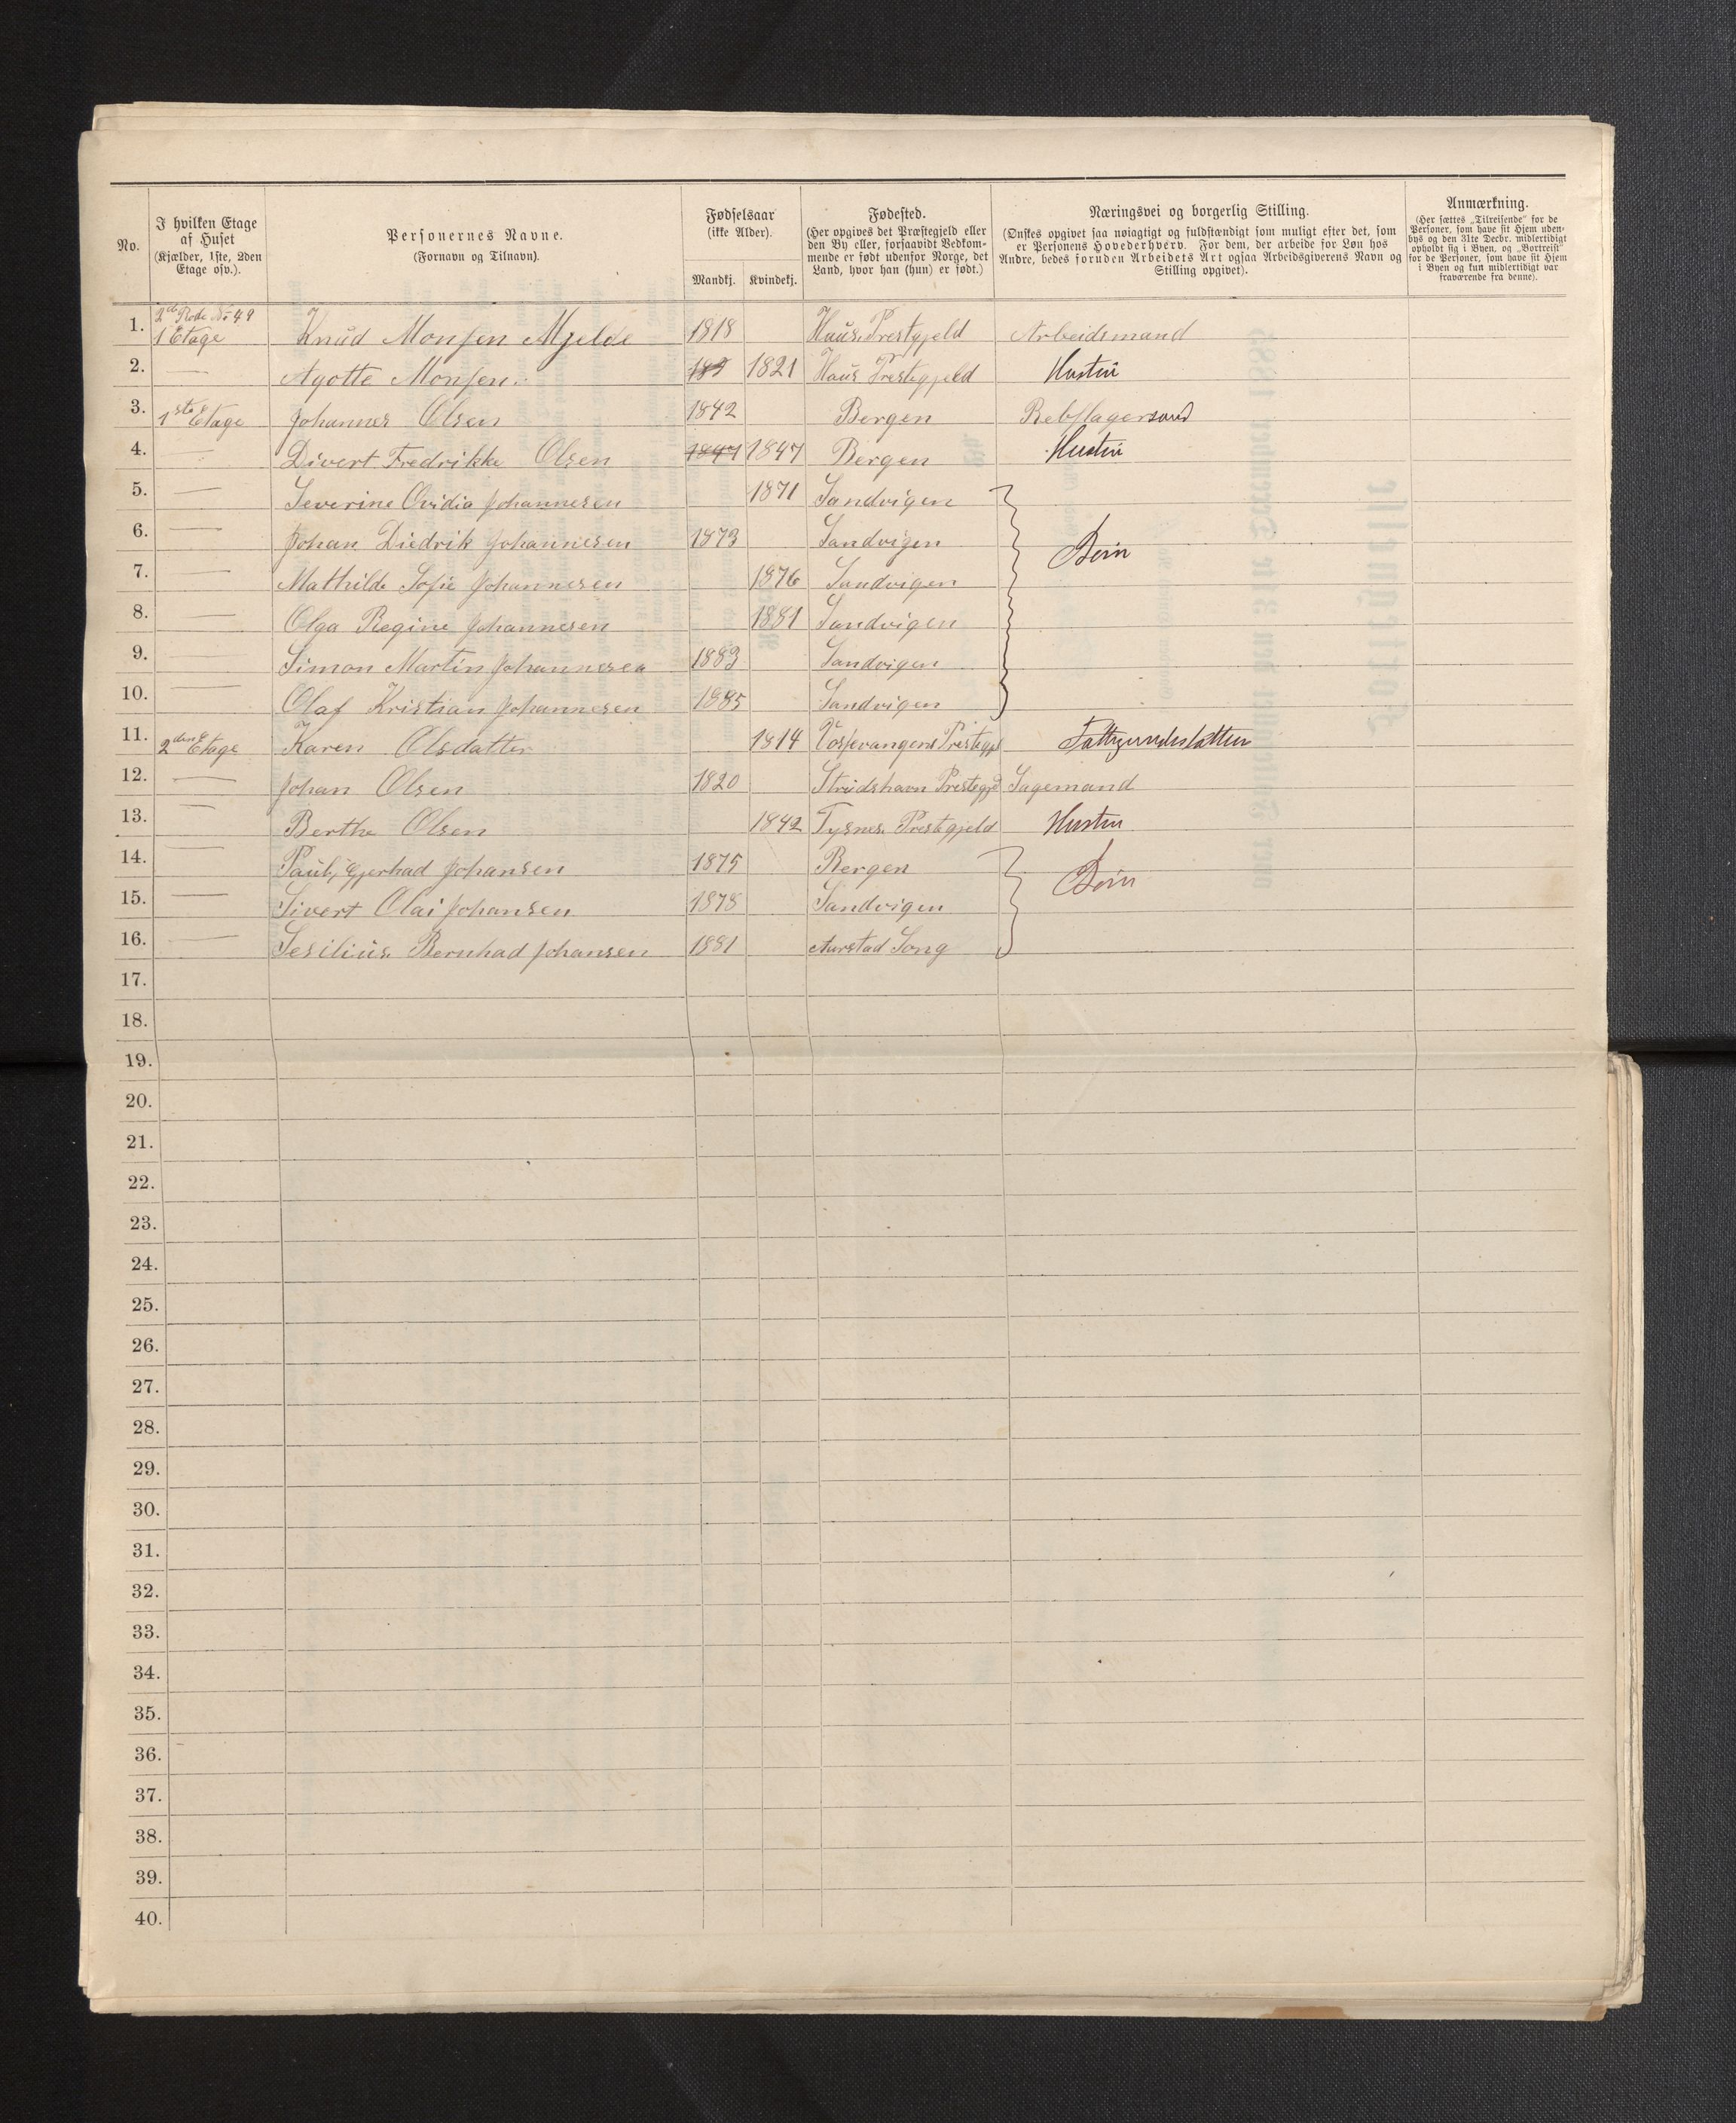 No.
I hvilken Etage af Huset (Kjælder, 1ste, 2den Etage osv.).
Personernes Navne. (Fornavn og Tilnavn).
Fødselsaar (ikke Alder).
Mandkj. Kvindekj.
Fødested. (Her opgives det Præstegjeld eller den By eller, forsaavidt Vedkommende er født udenfor Norge, det Land, hvor han (hun) er født.)
Næringsvei og borgerlig Stilling. (Ønskes opgivet saa nøiagtigt og fuldstændigt som muligt efter det, som er Personens Hovederhverv. For dem, der arbeide for Løn hos Andre, bedes foruden Arbeidets Art ogsaa Arbeidsgiverens Navn og Stilling opgivet).
Anmærkning. (Her sættes „Tilreisende" for de Personer, som have sit Hjem udenbys og den 31te Decbr. midlertidigt opholdt sig i Byen, og „Bortreist" for de Personer, som have sit Hjem i Byen og kun midlertidigt var fraværende fra denne).
2de Rode No 49
1. 1 Etage Knud Monsen Mjelde 1818 Haus Prestgjeld Arbeidsmand
2. — Agotte Monsen 1821 Haus Prestegjeld Hustru
3. 1ste Etage Johannes Olsen 1842 Bergen Rebslagersvend
4. — Divert Fredrikke Olsen 1847 1847 Bergen Hustru
5. — Severine Ovidia Johannesen 1871 Sandvigen
6. — Johan Diedrik Johannesen 1873 Sandvigen Børn
7. — Mathilde Sofie Johannesen 1876 Sandvigen
8. — Olga Regine Johannesen 1881 Sandvigen
9. — Simon Martin Johannesen 1883 Sandvigen
10. — Olaf Kristian Johannesen 1885 Sandvigen
11. 2den Etage Karen Olsdatter 1814 Vossevangens Prestegjl
12. — Johan Olsen 1820 Strudshavn Prestegjd Sagemand
13. — Berthe Olsen 1842 Tysnes Prestegjeld Hustru
14. — Paul Gjerhad Johansen 1875 Bergen Børn
15. — Sivert Olai Johansen 1878 Sandvigen
16. — Sesilius Bernhad Johansen 1881 Aarstad Song
17.
18.
19.
20.
21.
22.
23.
24.
25.
26.
27.
28.
29.
30.
31.
32.
33.
34.
35.
36.
37.
38.
39.
40.